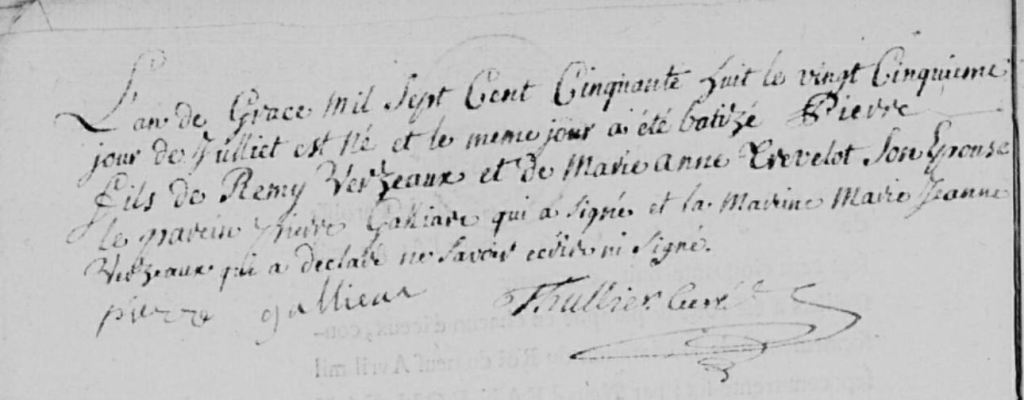 L'an de Grace mil sept Cent Cinquante huit le vingt Cinquieme
jour de Julliet est Né et le meme jour a été batizé Pierre
fils de Remy Verzeaux et de Marie Anne Trevelot Son Epouse
le parein Pierre Galliare qui a signé et la Marine Marie Jeanne
Verzeaux qui a declaré ne savoir ecrire ni signé.
pierre gallieur Thullier Curé